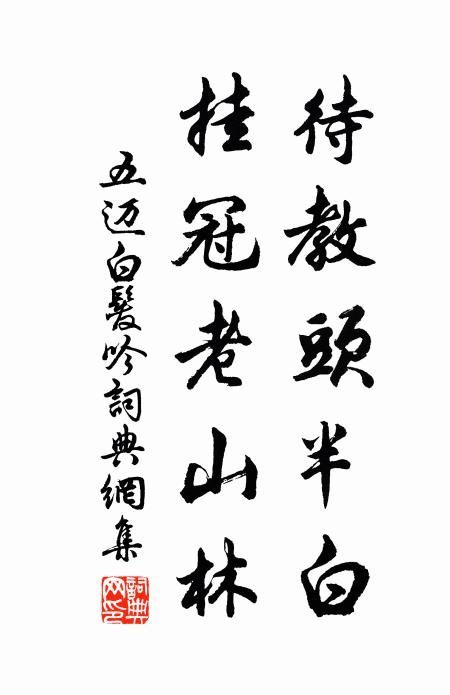 待教頭半白
挂冠老山林
五迈白髮吟詞典網集
詞典網印